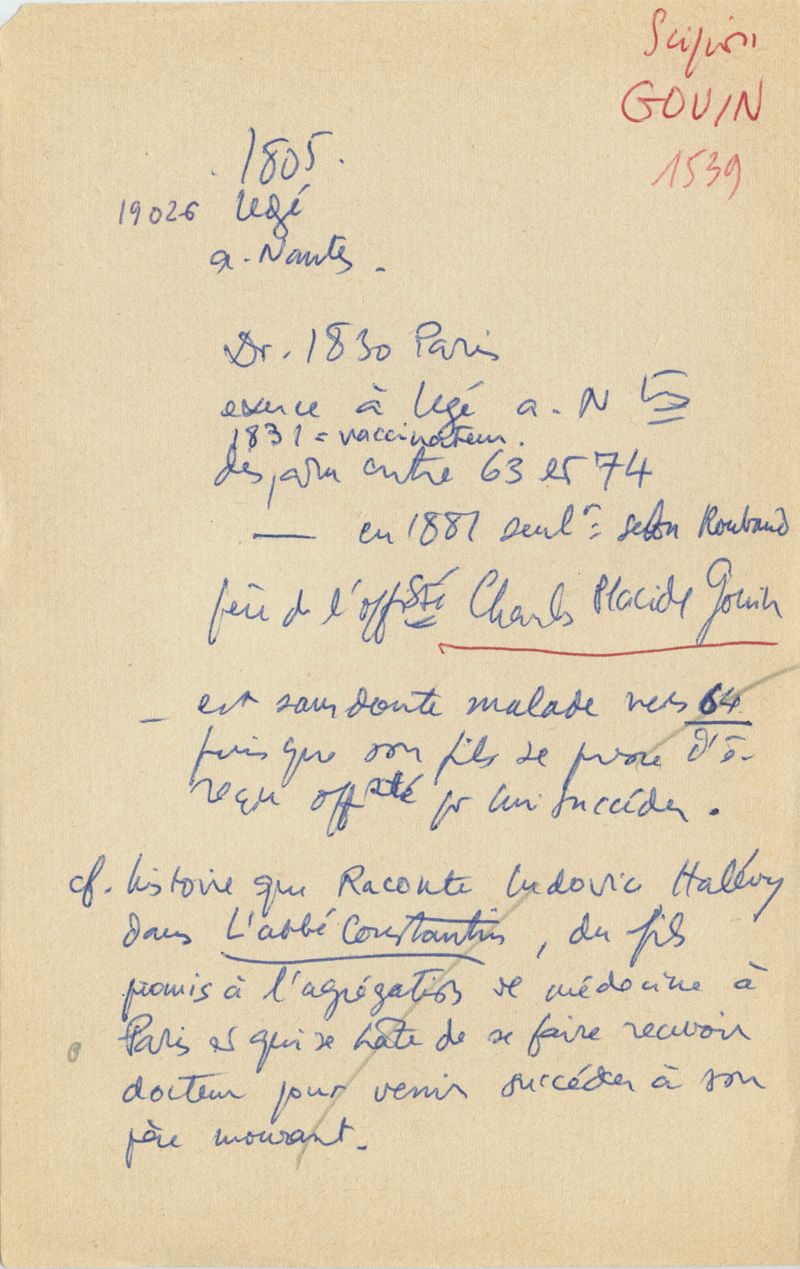 Scipion
GOUIN
1539
. 1805.
19026 Legé
a. Nantes.
Dr. 1830 Paris
exerce à Legé a. N
1831 = vaccinateur.
disparu entre 63 et 74
— en 1881 seult = selon Roubaud
père de l'off sté Charles Placide Gouin
– est sans doute malade vers 64
puis que son fils se presse d'ê.
reçu off sté pr lui succéder.
cf. histoire que Raconte Ludovic Halévy
dans L'abbé Constantin, du fils
promis à l'agrégation de médecine à
Paris et qui se hâte de se faire recevoir
docteur pour venir succéder à son
père mourant.